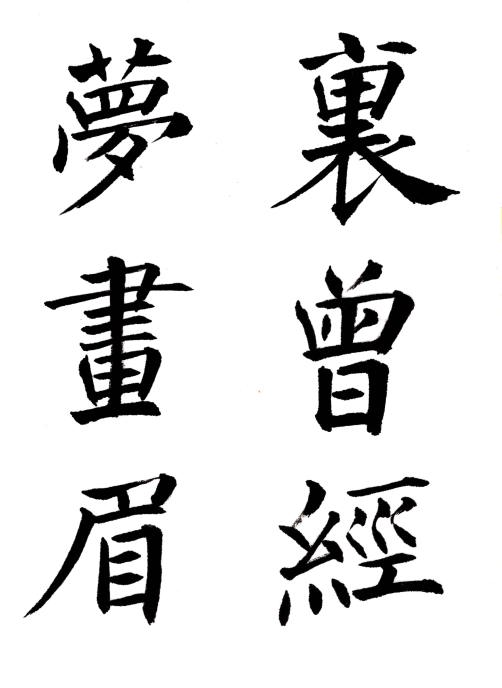 裏曾經
夢畫眉